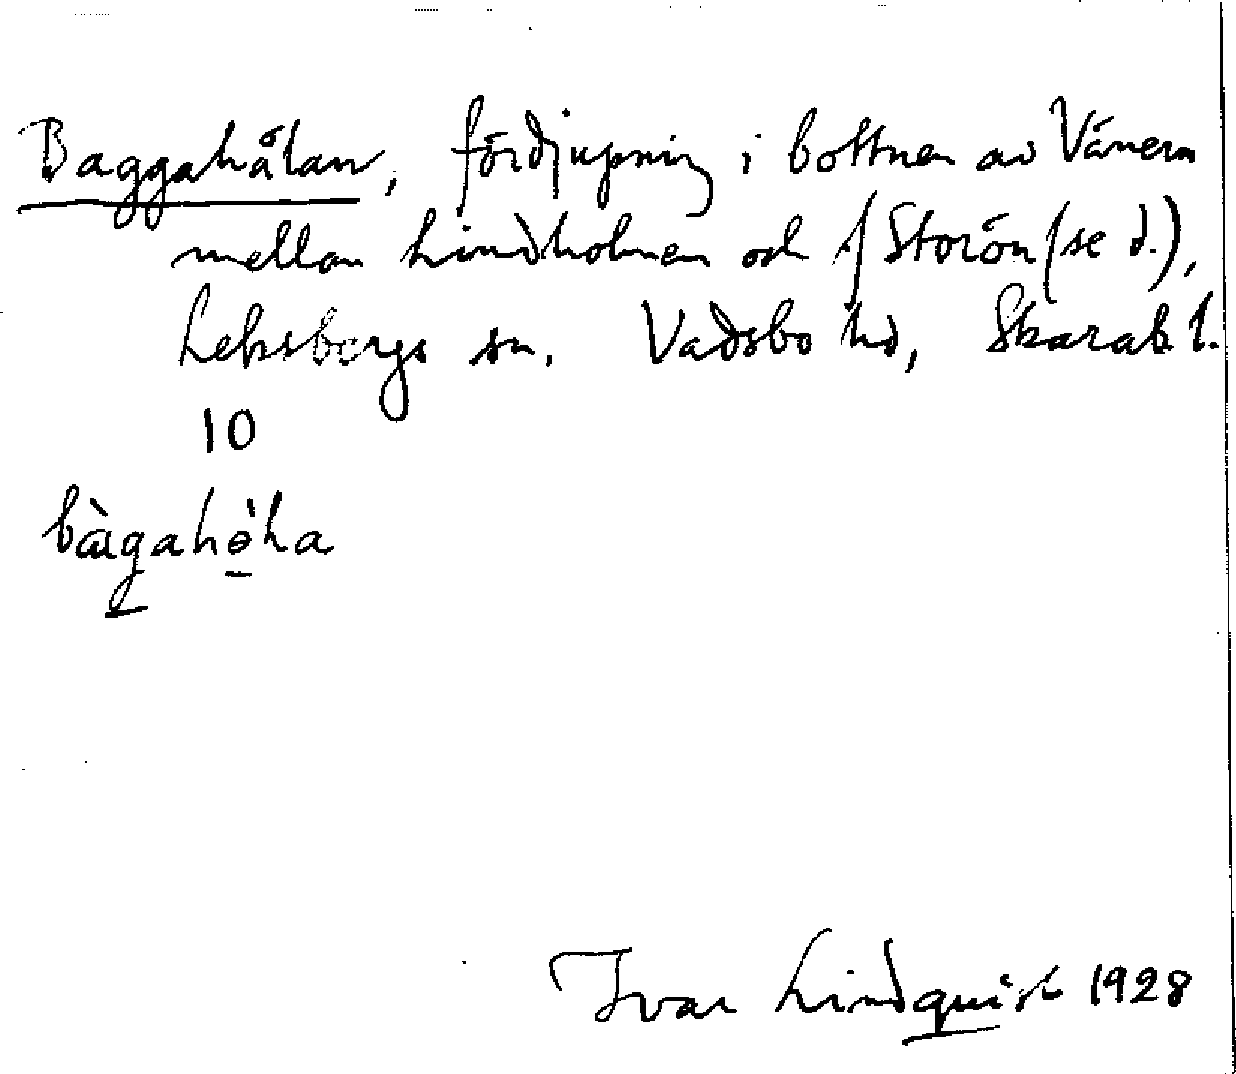 Baggahålan, fördjupning i bottnen av Vänern
mellan Lindholmen och /Storön (se d.),
Leksbergs sn. Vadsbo hd, Skarab. l.
10
Ivar Lindquist 1928